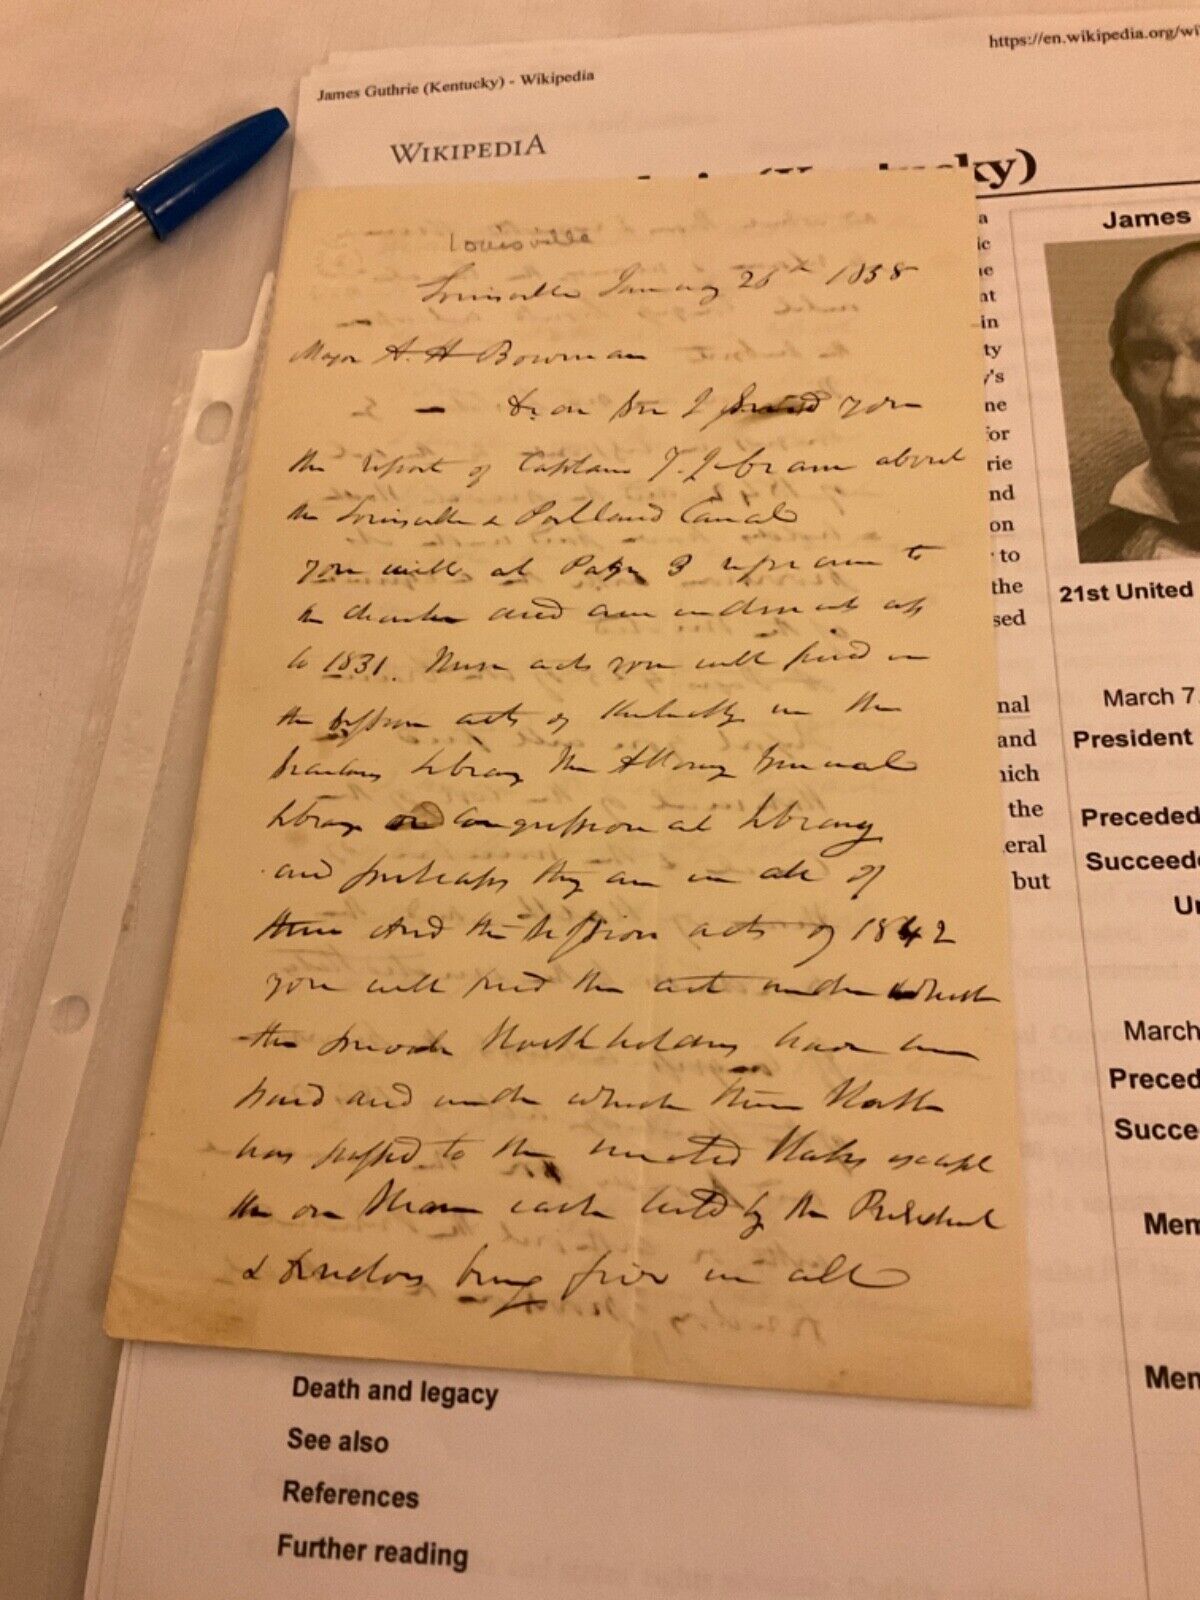 https://en.wikipedia.org/wi
James Guthrie (Kentucky) - Wikipedia
WIKIPEDIA
ky)
Louisville
Louisville January 26th 1858
Major A. H Bowman
Dear Sir I send you
the report of Captain T. J. Cram about
the Louisville & Portland Canal
you will at Page 3 reference to
the charter and amendments acts
to 1831. These acts you will find in
the session acts of Kentucky in the
Library the Attorney General
Library or Congressional Library
and perhaps they are in all of
them And the session acts of 1842
you will find the act under which
the private Stockholders have been
paid and under which their Stock
has passed to the United States except
the one Share each held by the President
& Directors being five in all
James
21st United
March 7
President
Preceded
Succeede
March
Preced
Succe
Mem
Mem
a
ic
ne
nt
in
ty
's
ne
for
rie
nd
on
to
the
sed
nal
and
nich
the
eral
but
Death and legacy
See also
References
Further reading